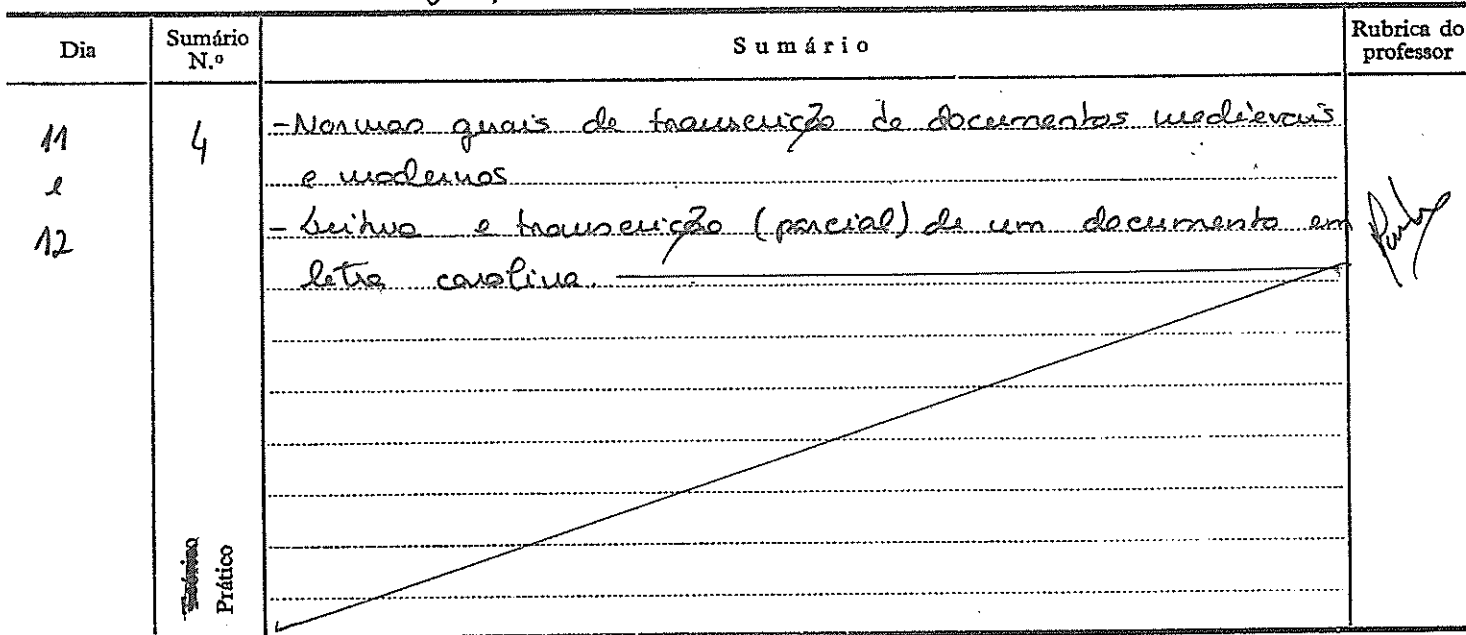 Dia
Sumário N.º
Sumário
Rubrica do professor
11 e 12
4
- Normas gerais de transcrição de documentos medievais
e modernos
- Leitura e transcrição (parcial) de um documento em
letra carolina.
Teórico
Prático